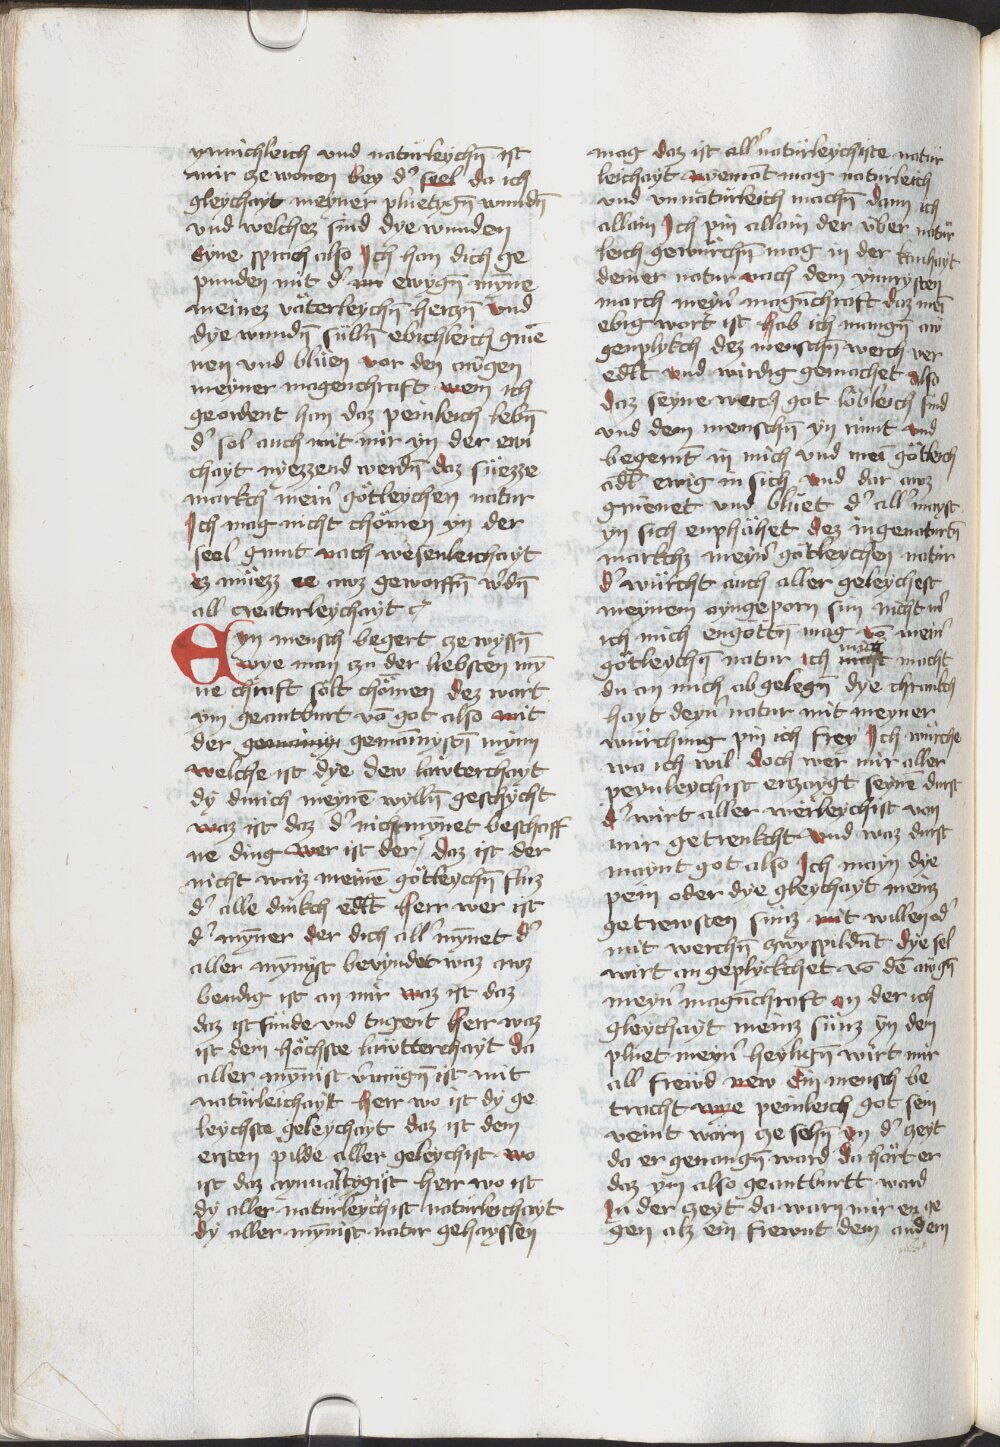 mynichleich und naturleychn̄ ist
mir ze wonen bey d' seel da ich
gleychayt meyner pluetygn̄ wundn̄
und welchez sind dye wunden
Eyne sprach also Ich han dich ge
punden mit d' ewygn̄ mȳne
meinez väterleychn̄ herczn̄ Und
dye wundn̄ sülln̄ ebichleich grüe
nen und blüen vor den awgen
meyner magenchraft wem ich
geordent han daz peinleich lebn̄
d' sol auch mit mir yn der ewi
chayt nyezzend werdn̄ daz süezze
markch mein' götleychen natur
Ich mag nicht chömen yn der
seel grunt nach wesenleichayt
ez müezz ee awz geworffn̄ w'dn̄
all creaturleychayt
Eyn mensch begert cze wyssn̄
wye man czu der liebsten mȳ
ne chraft solt chömen dez wart
ym geantburt vō got also mit
der gemainystn̄ mynn
welche ist dye dew lawterchayt
dy durich meynē wylln̄ geschycht
waz ist daz d' nicht mȳnet beschaff
ne ding wer ist der / daz ist der
nicht waiz meinē götleychn̄ fluz
d' alle dinkch edlt herr wer ist
d' mȳner der dich all' mȳnet d'
aller mȳnist bevyndet waz awz
bendig ist an mir waz ist daz
daz ist sünde und tugent herr waz
ist dem höchste lawtterchayt da
aller mȳnist v'mügn̄ ist mit
naturleichayt herr wo ist dy ge
leychste geleychayt daz ist dem
ersten pilde aller geleychist wo
ist daz aynualtygist herr wo ist
dy aller naturleychist naturleichayt
dy aller mȳnist natur gehayssen
mag daz ist all' naturleychiste natur
leichayt nyemāt mag naturleich
und un naturleich machn̄ dann ich
allain Ich pin allain der über natur
leich gewürchn̄ mag in der kranchayt
deiner natur nach dem ynnrysten
march meyn' magn̄chraft daz mei
ebig wort ist hab ich mangn̄ aw
genplykch dez menschn̄ werch ver
edlt und wirdig gemachet also
daz seyne werch got löbleich sind
und dem menschn̄ yn nimt und
begernt in mich und mei götleich
adl' ewig in sich und dar awz
grüenet und blüet d' all' mayst
yn sich enphähet dez ingenaturtn̄
markchz meyn' götleychen natur
d' würcht auch aller geleychest
meynem ayngeporn sun nicht m'
ich mich engöttn̄ mag vō mein'
götleychn̄ natur Ich mag macht
du an mich ab gelegn̄ dye chranch
hayt deyn' natur mit meyner
würching pin ich frey Ich würche
wa ich wil doch wer mir aller
peynleychist erzaygt seynē durst
d' wirt aller werleychist von
mir getrenkcht und waz durst
maynt got also Ich mayn dye
pein oder dye gleychayt meinz
getrewsten sünz mit willen od'
mit werchn̄ zwyspildn̄t dye sel
wirt an geplyckchet vō dē awgn̄
meyn' magn̄chraft an der ich
gleychayt meinz sünz yn den
pluet meyn' heylign̄ wirt mir
all frewd new Ein mensch be
tracht wye peinleich got sein
veint wärn ze sehn̄ yn d' zeyt
da er genangn̄ ward da hört er
daz ym also geantburtt ward
In der zeyt da warn mir en ge
gen alz ein frewnt dem andern